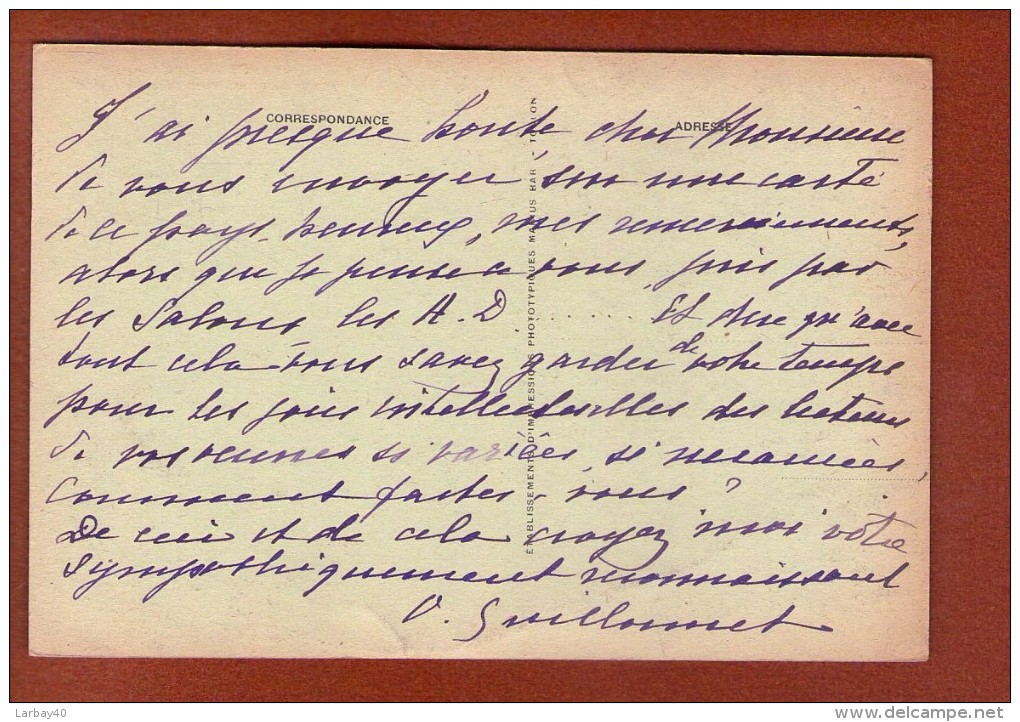 CORRESPONDANCE
ADRESSE
J'ai presque honte, cher Monsieur
de vous envoyer sur une carte
de ce pays heureux, mes remerciements,
alors que je pense à vous pris par
les Salons les A.D ....... Et dire qu'avec
tout cela vous savez garder de votre temps
pour les joies intellectuelles des lecteurs
de vos si variés, si
comment faites-vous ?
De ceci et de cela croyez moi vôtre
sympathiquement reconnaissant
Guillonnet
ÉTABLISSEMENTS D'IMPRESSIONS PHOTOTYPIQUES MARIUS BAR - TOULON
Larbay40
www.delcampe.net